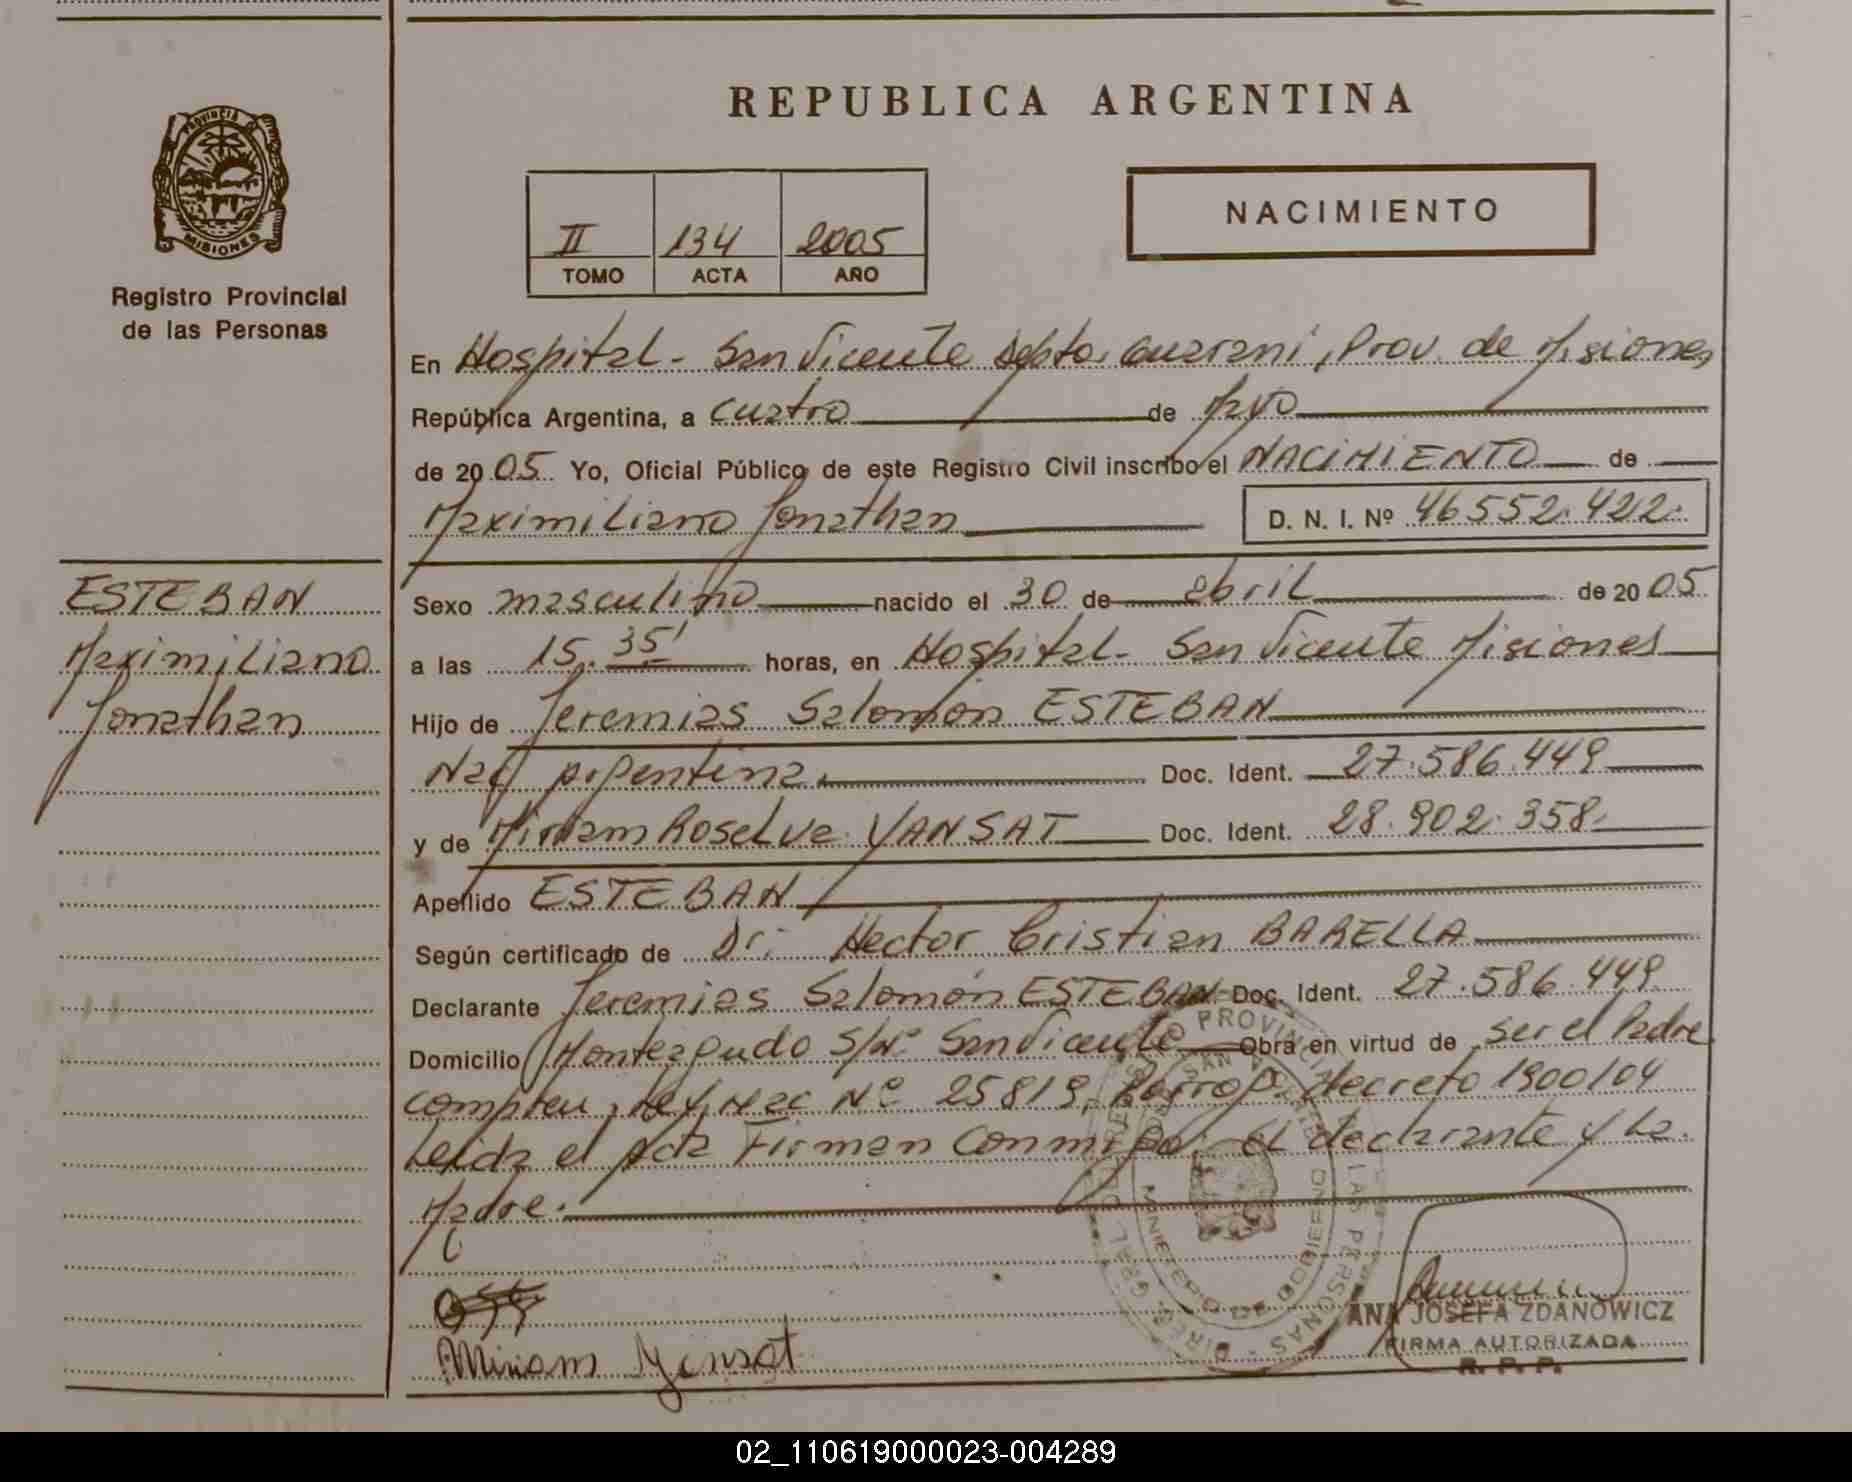 PROVINCIA DE
MISIONES
Registro Provincial
de las Personas
ESTEBAN
Maximiliano
Jonathan
REPUBLICA ARGENTINA
II 134 2005
TOMO ACTA AÑO
NACIMIENTO
En Hospital - San Vicente Depto. Guaraní, Prov. de Misiones
República Argentina, a cuatro de Mayo
de 2005 Yo, Oficial Público de este Registro Civil inscribo el NACIMIENTO de
Maximiliano Jonathan D. N. I. Nº 46552.422.
Sexo masculino nacido el 30 de abril de 2005
a las 15.35' horas, en Hospital - San Vicente Misiones
Hijo de Jeremias Salomón ESTEBAN
Nac. Argentina. Doc. Ident. 27.586.449
y de Miriam Roselva YANSAT Doc. Ident. 28.902.358.
Apellido ESTEBAN
Según certificado de Dr: Hector Cristian BARELLA
Declarante Jeremias Salomón ESTEBAN Doc. Ident. 27.586.449
Domicilio Monteagudo S/Nº San Vicente Obra en virtud de ser el Padre
Ley Nac Nº 25819, decreto 1900/04
Leida el Acta Firman Conmigo: el declarante y la
Madre.
Miriam Yansat
ANA JOSEFA ZDANOWICZ
FIRMA AUTORIZADA
R. P. P.
02_110619000023-004289